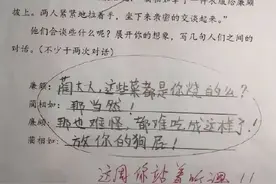 拔上。两人紧紧地拉着手，坐下来亲密的交谈起来。”
他们会谈些什么呢？展开你的想象，写几句人们之间的
对话。（不少于两次对话）
廉颇：蔺大人，这些菜都是你烧的么？
蔺相如：那当然！
廉颇：那也难怪，都难吃成这样了！
蔺相如：放你的狗屁！
这周你站着听课！！